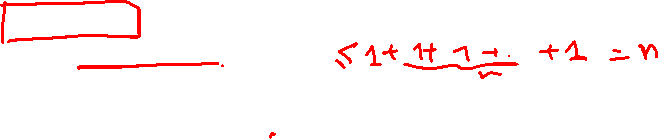 ≤ 1 + 1 + 1 + .. + 1 = n